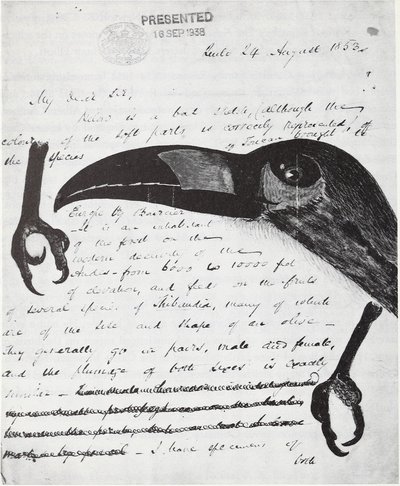 PRESENTED
16 SEP 1938
Quito 24 August 1853
My dear Sir,
Below is a bad sketch, (although the
colouring of the soft parts is correctly represented) of
the species of Toucan brought to
Europe by Bourcier
— It is an inhabitant
of the forest on the
western declivity of the
Andes — from 6000 to 10000 feet
of elevation, and feeds on the fruits
of several species of Thibaudia, many of which
are of the size and shape of an olive —
They generally go in pairs, male and female,
and the plumage of both sexes is exactly
similar —
— I have specimens of
both